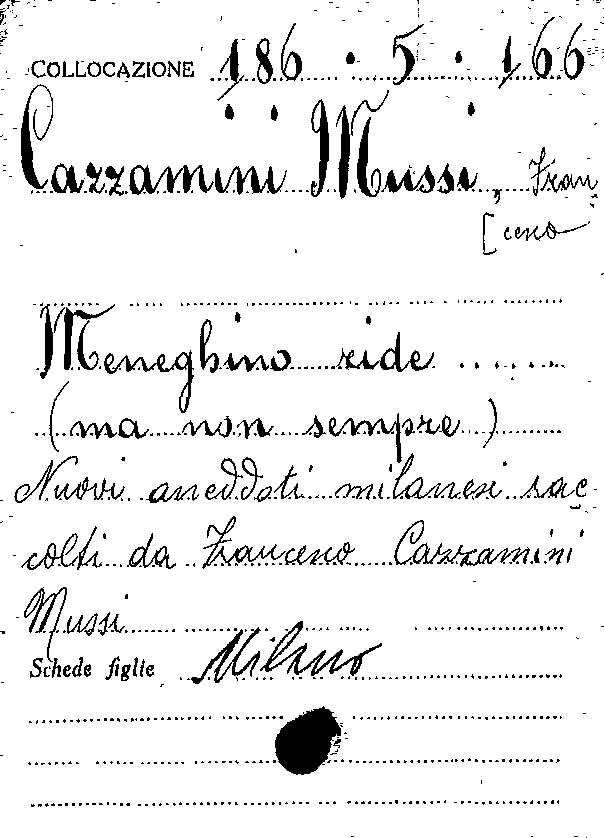 COLLOCAZIONE 186 · 5 · 166
Cazzamini Mussi, Fran-
[cesco
Meneghino ride ......
(ma non sempre)
Nuovi aneddoti milanesi rac-
colti da Francesco Cazzamini
Mussi
Schede figlie Milano